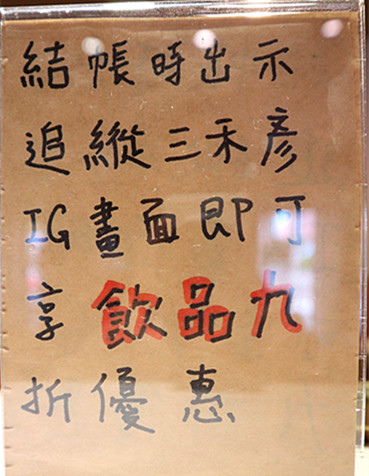 結帳時出示
追縱三禾彥
IG畫面即可
享飲品九
折優惠